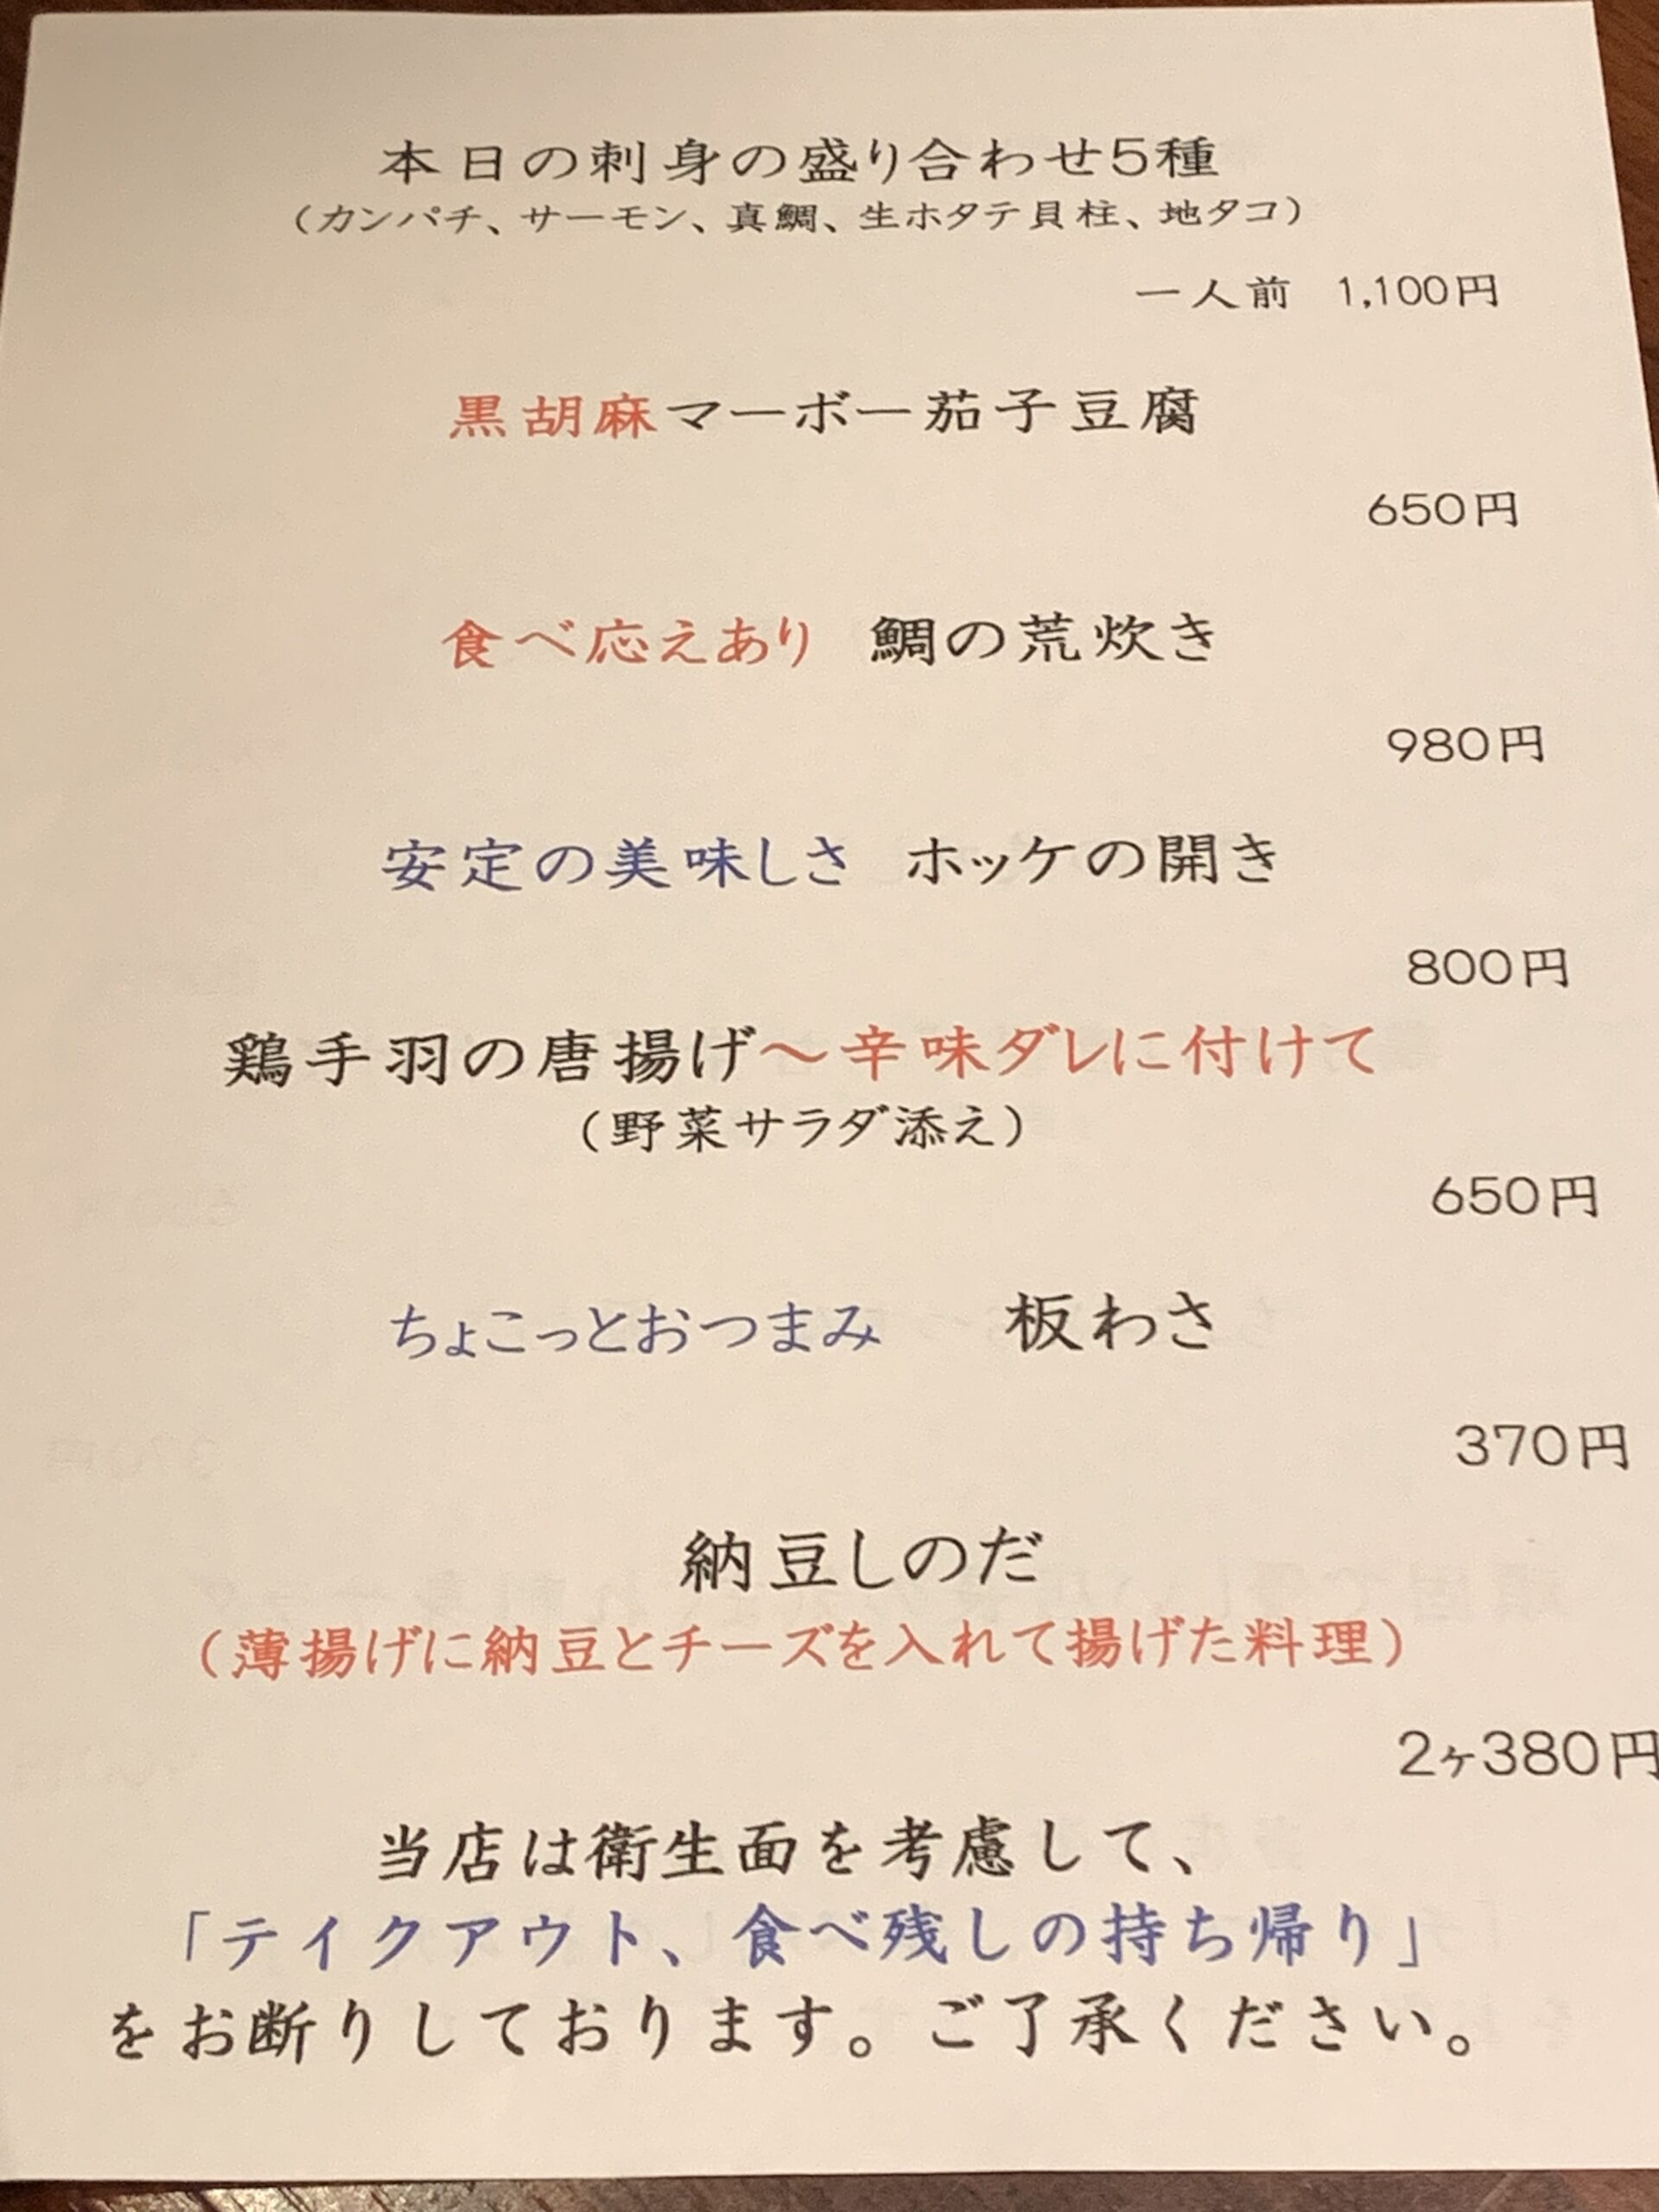 本日の刺身の盛り合わせ5種
（カンパチ、サーモン、真鯛、生ホタテ貝柱、地タコ）
一人前 1,100円
黒胡麻マーボー茄子豆腐
650円
食べ応えあり 鯛の荒炊き
980円
安定の美味しさ ホッケの開き
800円
鶏手羽の唐揚げ～辛味ダレに付けて
（野菜サラダ添え）
650円
ちょこっとおつまみ 板わさ
370円
納豆しのだ
（薄揚げに納豆とチーズを入れて揚げた料理）
2ヶ380円
当店は衛生面を考慮して、
「テイクアウト、食べ残しの持ち帰り」
をお断りしております。ご了承ください。